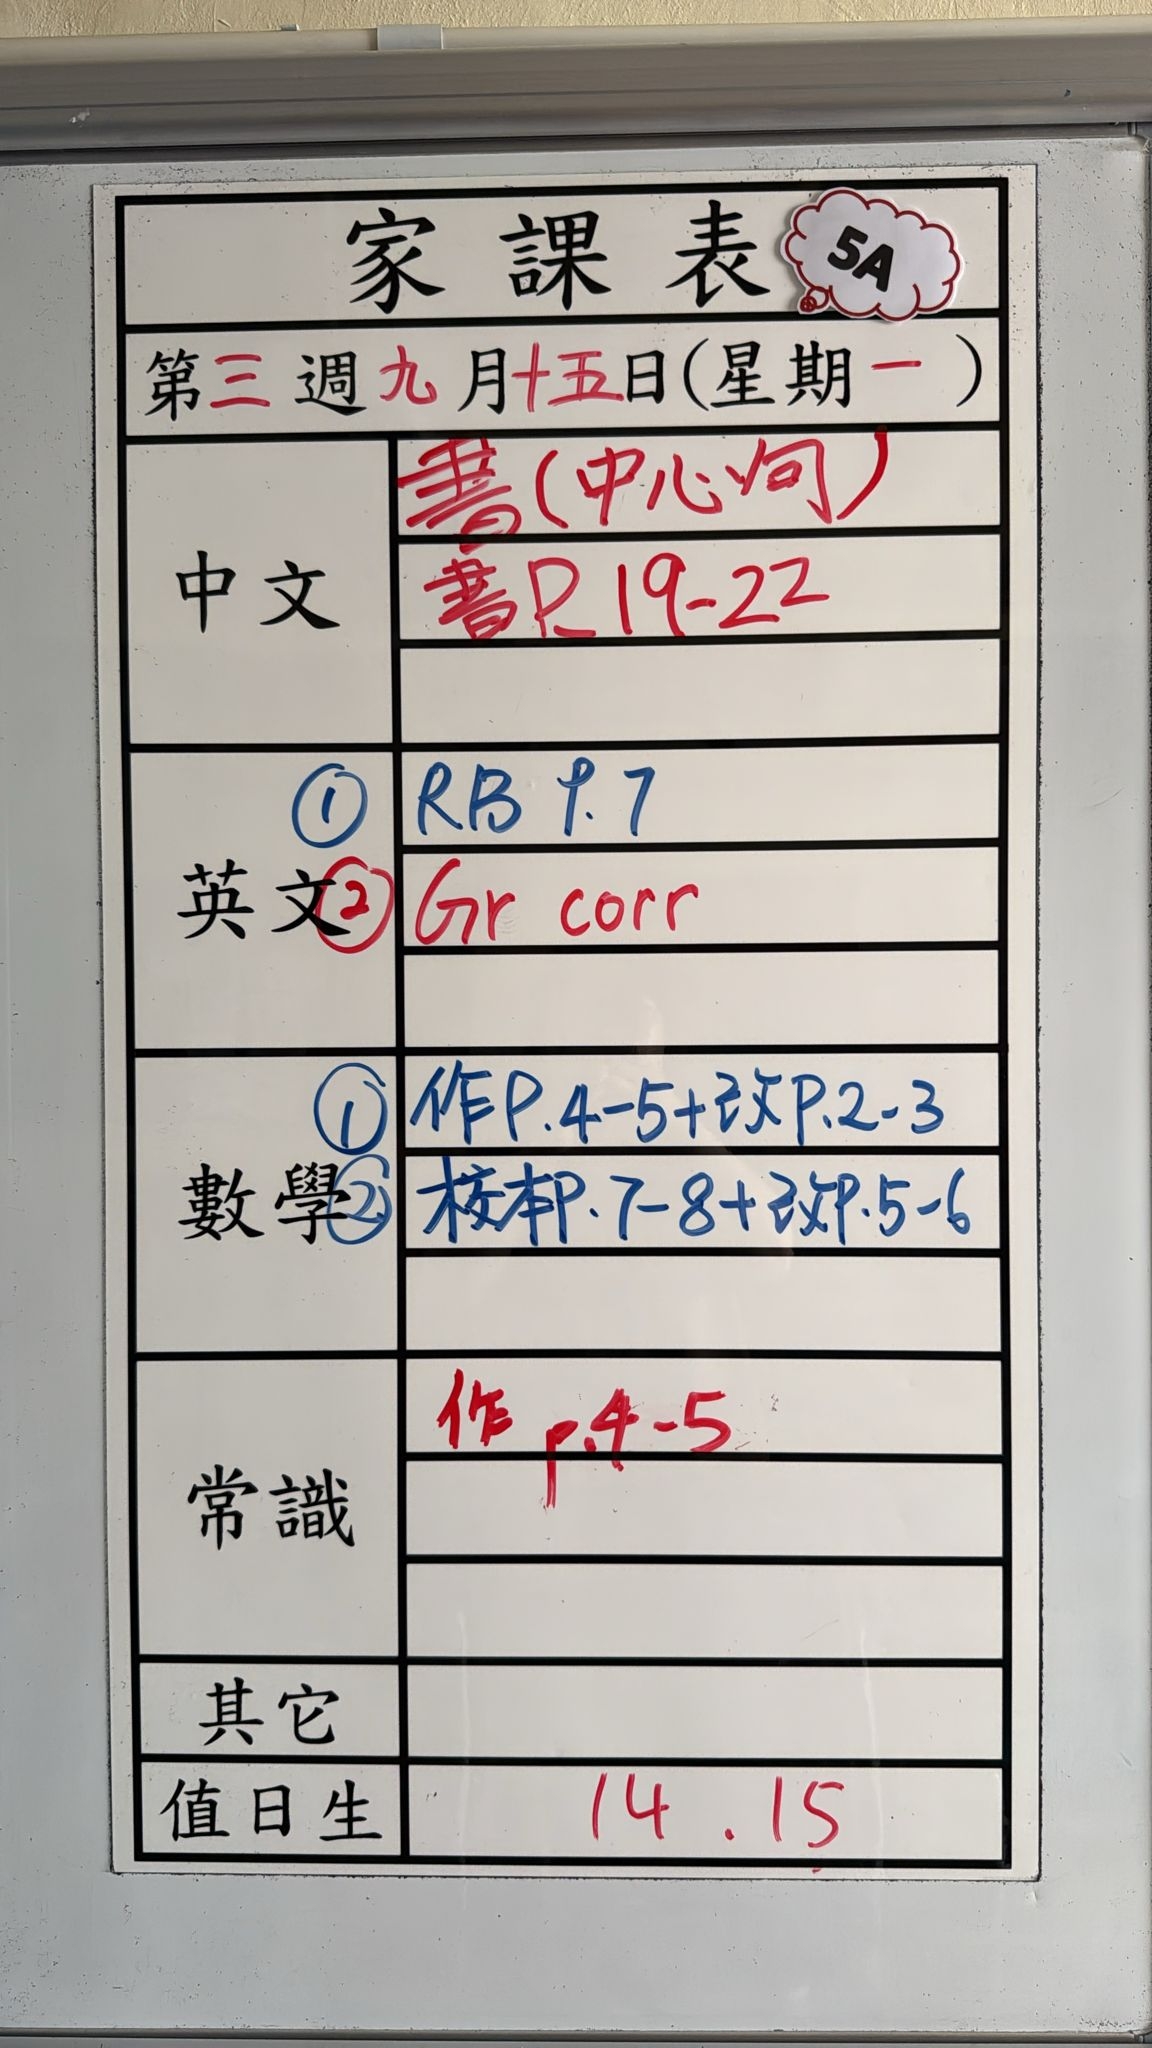 家課表 5A
第三週九月十五日(星期一)
中文
書(中心句)
書P.19-22
英文
① RB P.7
② Gr corr
數學
① 作P.4-5+改P.2-3
② 校本P.7-8+改P.5-6
常識
作 p.4-5
其它
值日生 14.15